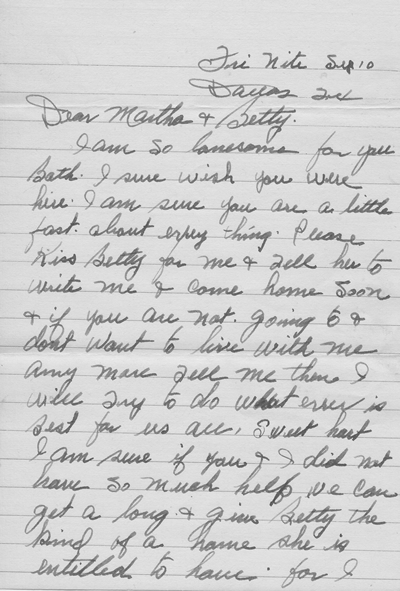 Fri Nite Sep 10
Dallas Tex
Dear Martha & Betty.
I am so lonesome for you
Both. I sure wish you were
hire. I am sure you are a little
fast. about errey thing. Please
Kiss Betty for me & Tell her to
write me & come home Soon
& if you are not. going to &
dont want to live with me
any more Tell me then I
wile Try to do what errey is
Best for us all, Sweet hart
I am sure if you & I did not
have so much help we can
get a long. & give Betty the
kind of a home she is
entitled to have. for I